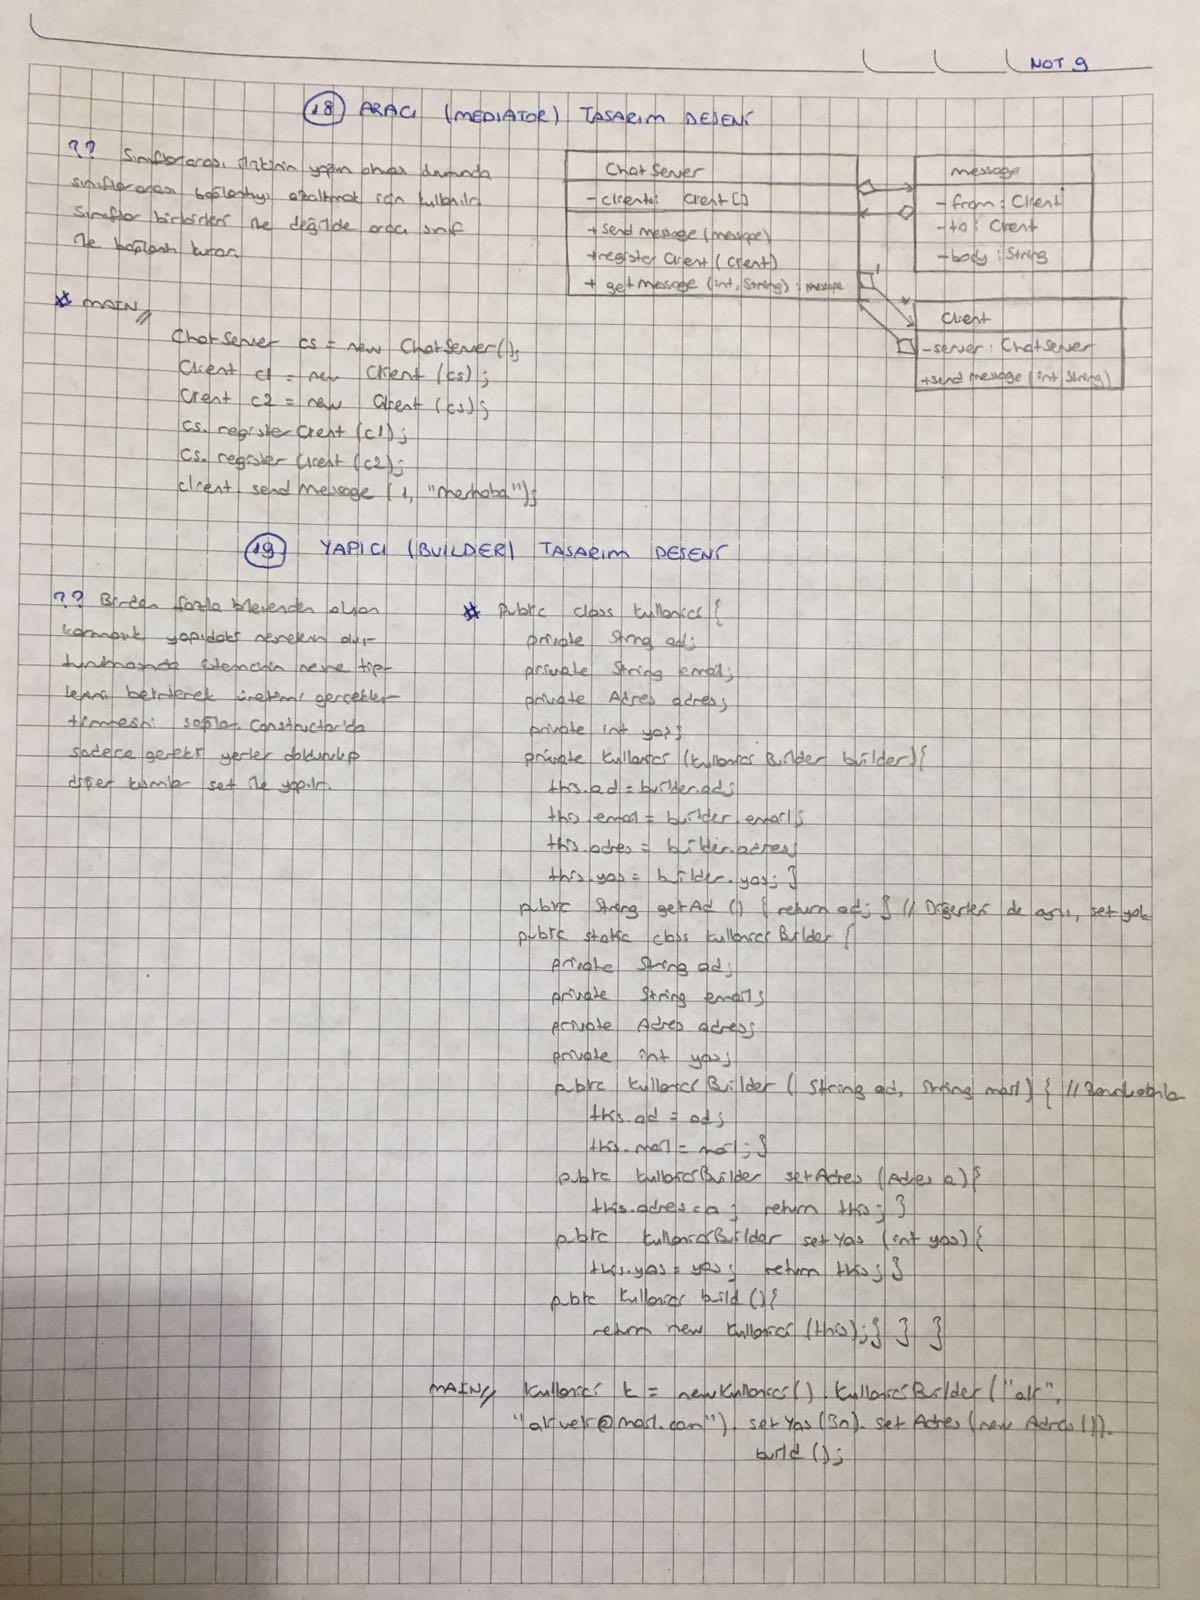 NOT 9
18 ARACI (MEDIATOR) TASARIM DESENİ
?? Sınıflararası ilişkinin yoğun olması durumunda
sınıflararası bağlantıyı azaltmak için kullanılır.
Sınıflar birbirleri ile değilde aracı sınıf
ile bağlantı kurar.
ChatServer
- clients: Client[]
+ send message (message)
+ register Client (Client)
+ get message (int, String) : message
message
- from : Client
- to : Client
- body : String
Client
- server : ChatServer
+ send message (int, String)
* MAIN//
ChatServer cs = new ChatServer();
Client c1 = new Client (cs);
Client c2 = new Client (cs);
cs. register Client (c1);
cs. register Client (c2);
client send message (1, "merhaba");
19 YAPICI (BUILDER) TASARIM DESENİ
?? Birden fazla bileşenden oluşan
kompleks yapıdaki nesnelerin oluş-
turulmasında istemcinin nesne tip-
lerini belirterek üretimi gerçekleş-
tirmesini sağlar. Constructor'da
sadece gerekli yerler doldurulup
diğer kısımlar set ile yapılır.
* public class Kullanici {
private String ad;
private String email;
private Adres adres;
private int yas;
private Kullanici (Kullanici Builder builder) {
this.ad = builder.ad;
this.email = builder.email;
this.adres = builder.adres;
this.yas = builder.yas; }
public String getAd () { return ad; } // Diğerleri de aynı, set yok
public static class Kullanici Builder {
private String ad;
private String email;
private Adres adres;
private int yas;
public Kullanici Builder ( String ad, String mail) { // Zorunlu
this.ad = ad;
this.mail = mail; }
public Kullanici Builder setAdres (Adres a) {
this.adres = a ; return this; }
public Kullanici Builder set Yas (int yas) {
this.yas = yas ; return this; }
public Kullanici build () {
return new Kullanici (this); } } }
MAIN// Kullanici k = new Kullanici() . Kullanici Builder ("ali",
"aliveli@mail.com") . set Yas (30). set Adres (new Adres ()).
build ();